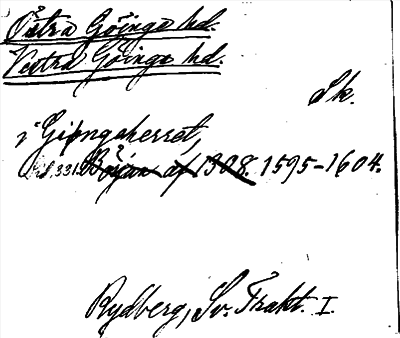 Östra Göinge hd.
Västra Göinge hd.
Sk.
i Giøngeherret,
s. 331. Början af 1308. 1595-1604.
Rydberg, Sv. Trakt. I.